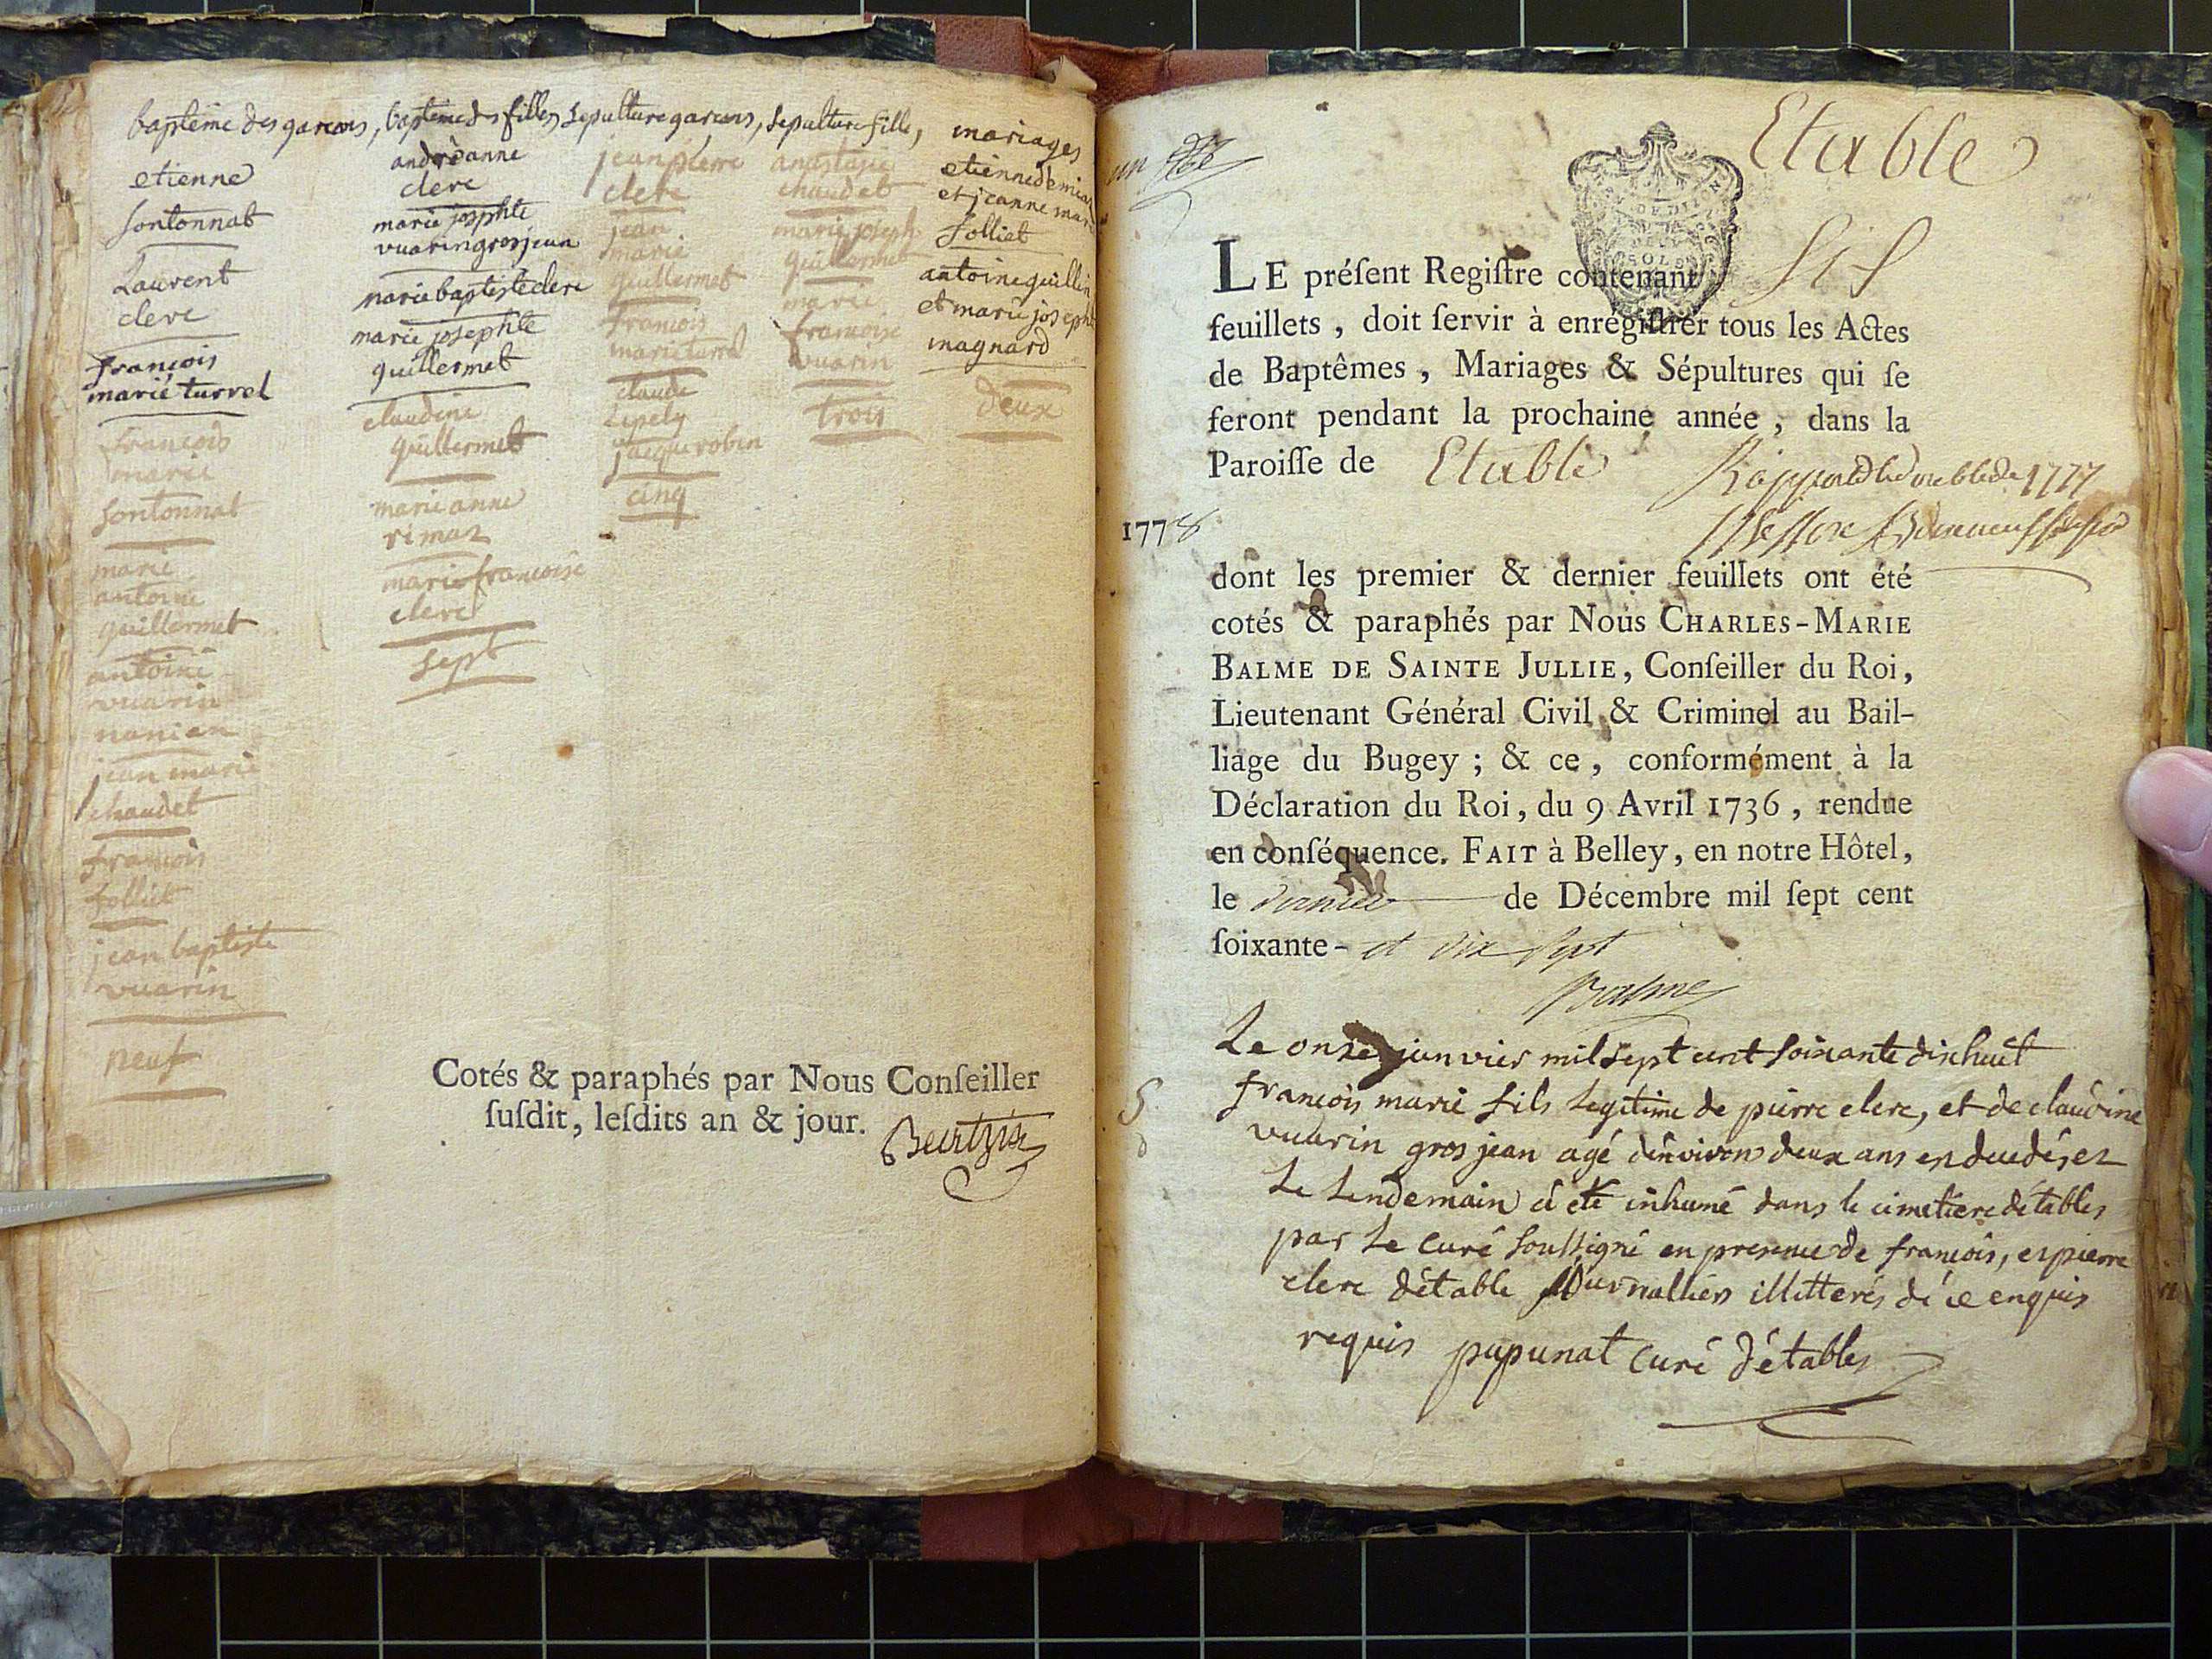 baptême des garcons, baptême des filles, sepulture garcons, sepulture fille, mariages
etienne
sontonnat
Laurent
clerc
françois
marie turrel
françois
marie
sontonnat
marie
antoine
guillermet
antoine
vuarin
nanian
jean marie
chaudet
françois
folliet
jean baptiste
vuarin
neuf
andréanne
clerc
marie josephte
vuarin grosjean
marie baptiste clerc
marie josephte
guillermet
claudine
guillermet
marie anne
rimaz
marie françoise
clerc
sept
jean pierre
clerc
jean
marie
guillermet
françois
marie turrel
claude
Lipely
jacque robin
cinq
anastasie
chaudet
marie joseph
guillermet
marie
francoise
vuarin
trois
etienne demia
et jeanne mar
folliet
antoine guillin
et marie joseph
magnard
deux
Cotés & paraphés par Nous Conſeiller
ſuſdit, leſdits an & jour.
un
Etable
LE préſent Regiſtre contenant six
feuillets, doit ſervir à enrégiſtrer tous les Actes
de Baptêmes, Mariages & Sépultures qui ſe
feront pendant la prochaine année, dans la
Paroiſſe de Etable
1778
dont les premier & dernier feuillets ont été
cotés & paraphés par Nous CHARLES-MARIE
BALME DE SAINTE JULLIE, Conſeiller du Roi,
Lieutenant Général Civil & Criminel au Bail-
liage du Bugey ; & ce, conformément à la
Déclaration du Roi, du 9 Avril 1736, rendue
en conſéquence. FAIT à Belley, en notre Hôtel,
le dernier de Décembre mil ſept cent
ſoixante- et dix sept
Balme
Le onze janvier mil sept cent soixante dix huit
françois marie fils Legitime de pierre clerc, et de claudine
vuarin gros jean agé d'environ deux ans es decédé, et
Le Lendemain à été inhumé dans le cimetiere détables
par Le curé soussigné en presence de françois, et pierre
clerc d'étable journalliers illitterés de ce enquis
requis pupunat curé d'étables